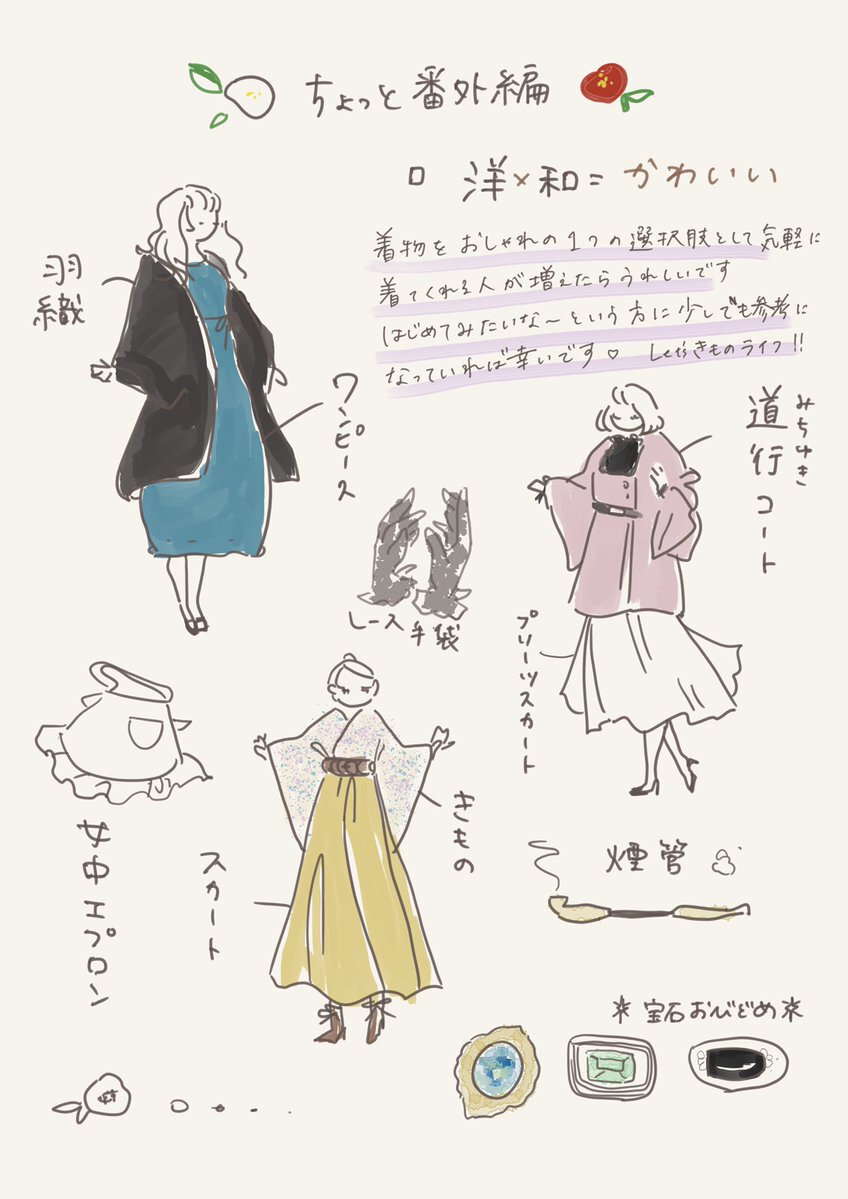 ちょっと番外編
□ 洋×和=かわいい
着物をおしゃれの1つの選択肢として気軽に
着てくれる人が増えたらうれしいです
はじめてみたいな〜という方に少しでも参考に
なっていれば幸いです♡ Let'sきものライフ!!
羽織
ワンピース
みちゆき
道行コート
レース手袋
プリーツスカート
女中エプロン
スカート
きもの
煙管
*宝石おびどめ*